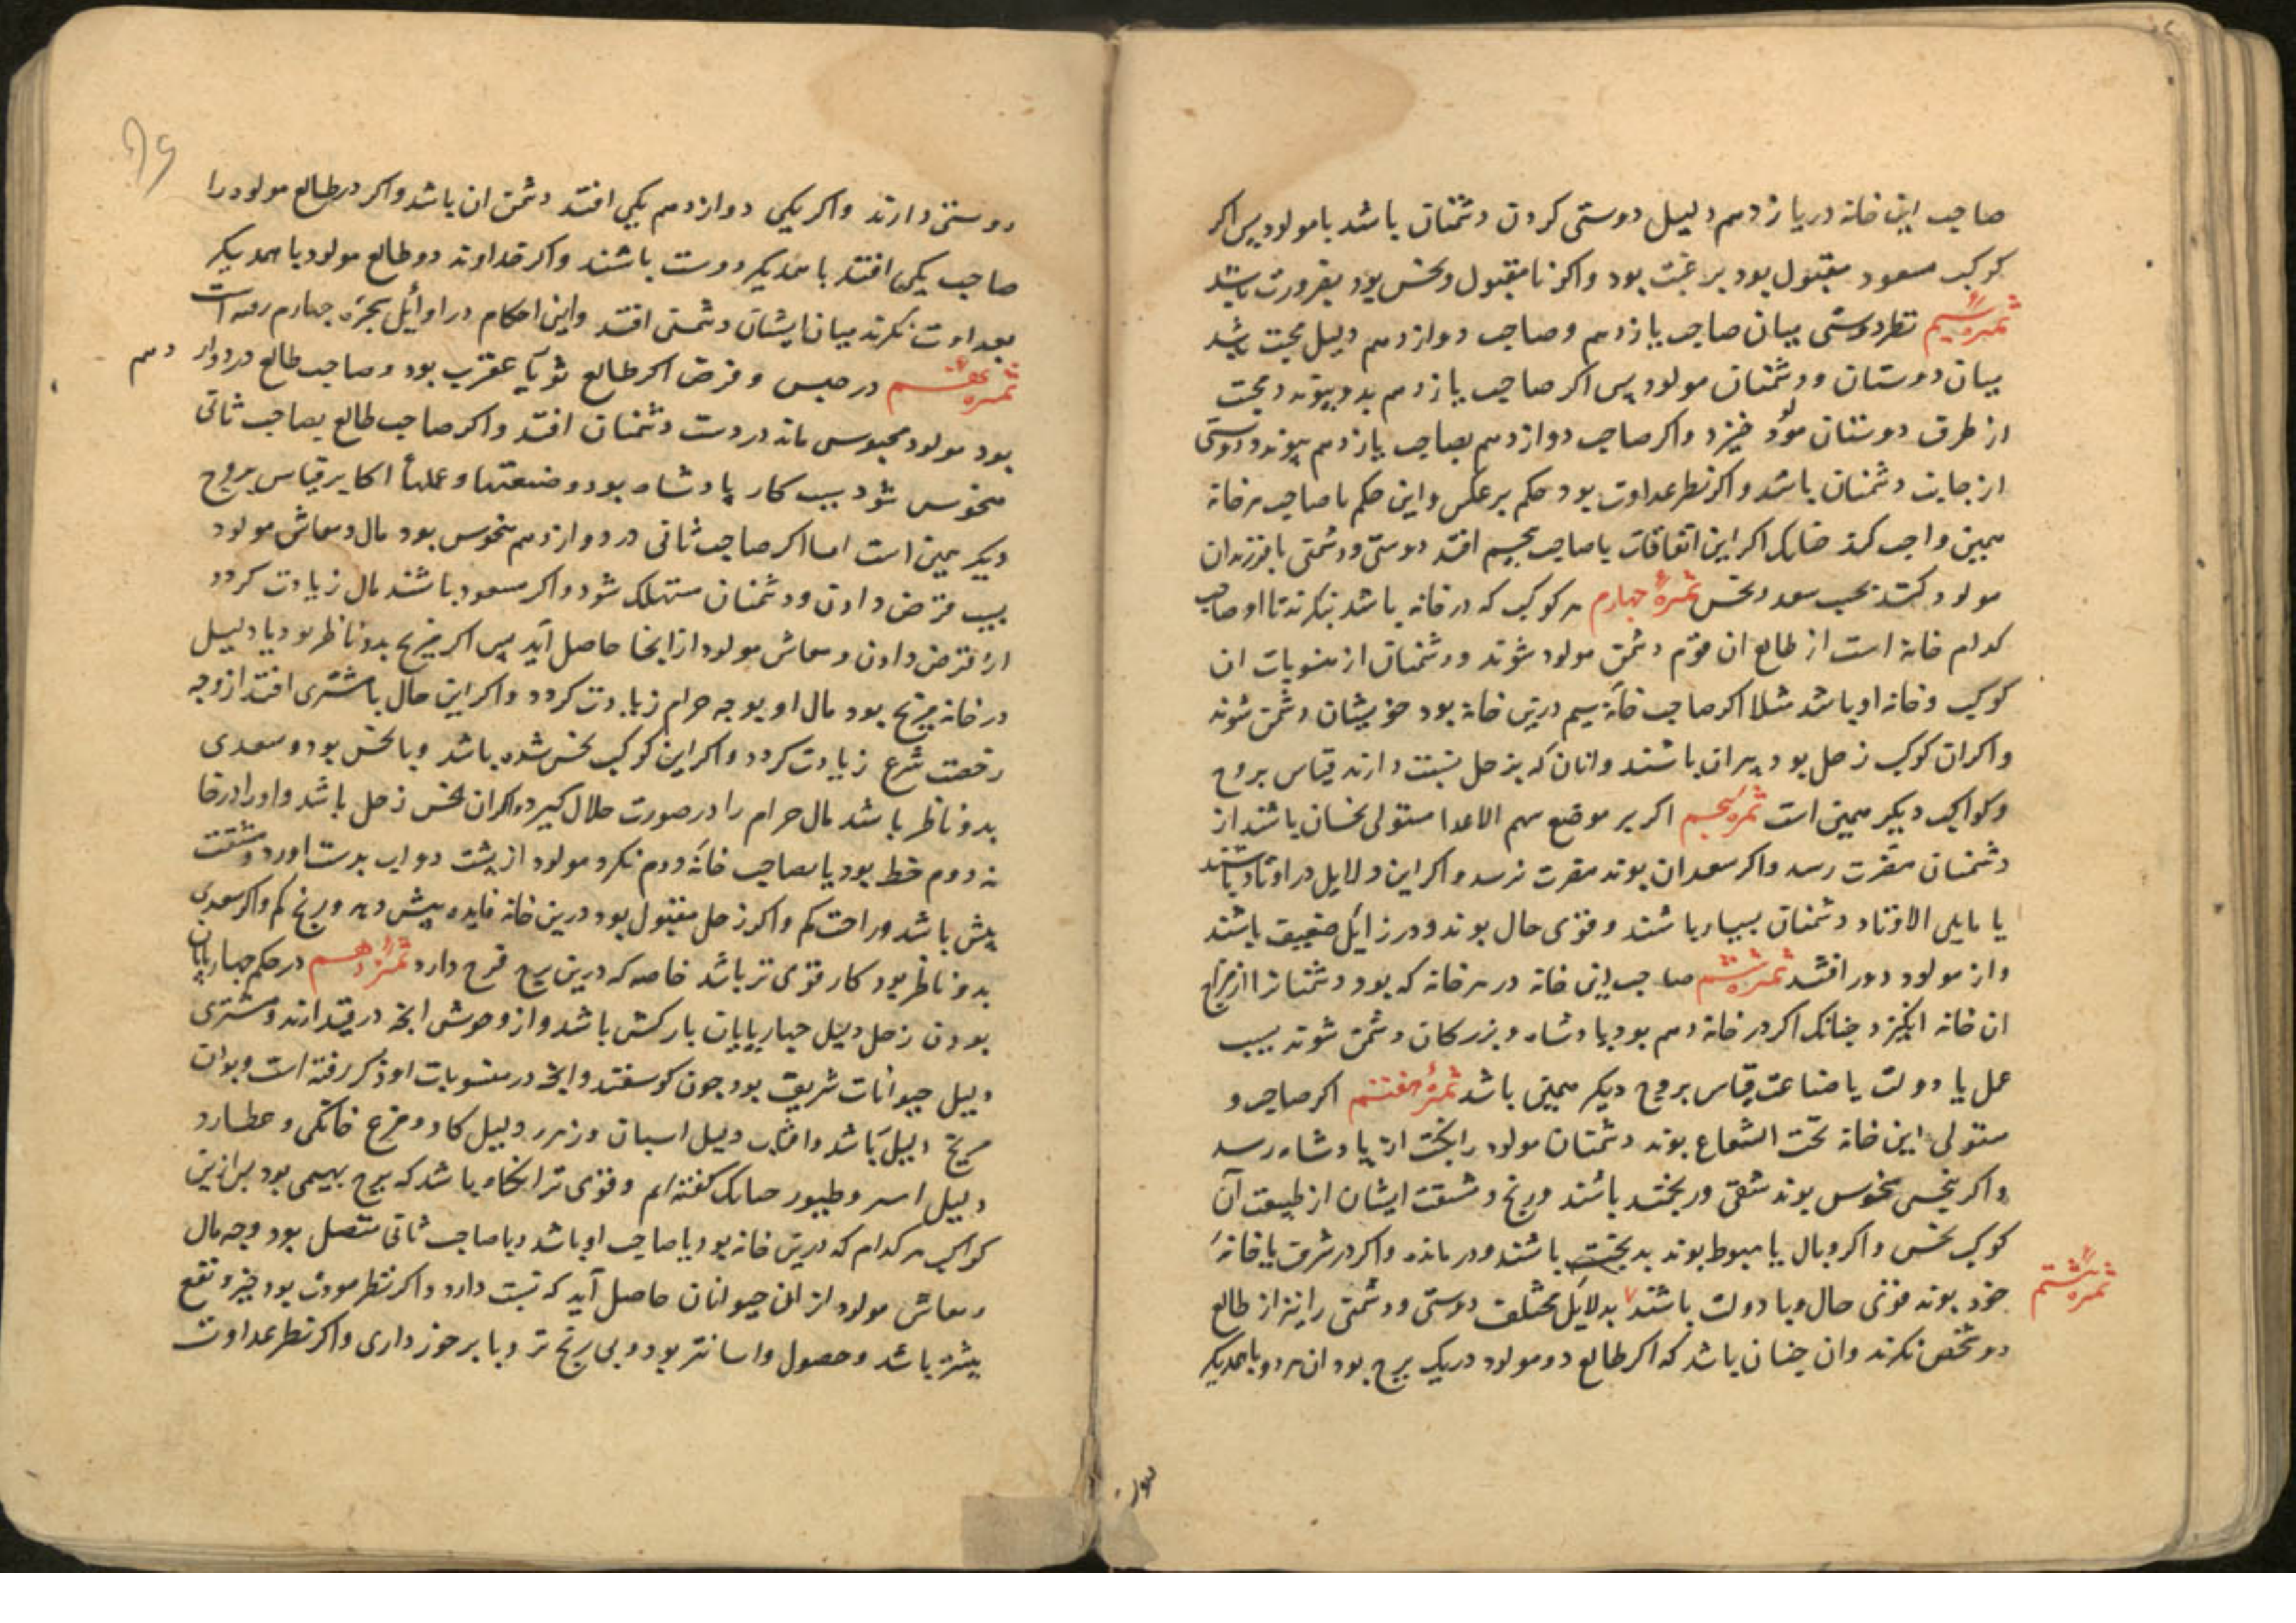 صاحب این خانه در یازدهم دلیل دوستی کردن دشمنان باشد با مولود پس اکر
کوکب مسعود مقبول بود برغبت بود واکر نامقبول ونحس بود بضرورت باشد
ثمرهٔ سیم نظر دوستی میان صاحب یازدهم وصاحب دوازدهم دلیل محبت باشد
میان دوستان ودشمنان مولود پس اکر صاحب یازدهم بدو پیوندد محبت
از طرف دوستان مولود خیزد واکر صاحب دوازدهم بصاحب یازدهم پیوندد دوستی
از جانب دشمنان باشد واکر نظر عداوت بود حکم برعکس واین حکم با صاحب هر خانه
همین واجب کند چنانک اکر این اتفاقات با صاحب پنجم افتد دوستی ودشمنی با فرزندان
مولود کنند بحسب سعد ونحس ثمرهٔ چهارم هر کوکب که در خانه باشد بنکرند تا او صاحب
کدام خانه است از طالع ان قوم دشمن مولود شوند ودشمنان از منسوبات ان
کوکب وخانه او باشد مثلا اکر صاحب خانهٔ سیم درین خانه بود خویشان دشمن شوند
واکر ان کوکب زحل بود پیران باشند وانان که بزحل نسبت دارند قیاس بروج
وکواکب دیکر همین است ثمرهٔ پنجم اکر بر موضع سهم الاعدا مستولی نحسان باشند از
دشمنان مضرت رسد واکر سعدان بوند مضرت نرسد واکر این دلایل در اوتاد باشند
یا مایلی الاوتاد دشمنان بسیار باشند وقوی حال بوند ودر زایل ضعیف باشند
واز مولود دور افتند ثمرهٔ ششم صاحب این خانه در هر خانه که بود دشمنانرا از مزاج
ان خانه انکیزد چنانک اکر در خانه دهم بود پادشاه وبزرکان دشمن شوند بسبب
عمل یا دولت یا صناعت قیاس بروج دیکر همین باشد ثمرهٔ هفتم اکر صاحب و
مستولی این خانه تحت الشعاع بوند دشمنان مولود را نکبت از پادشاه رسد
واکر بنحس منحوس بوند شقی وبدبخت باشند ورنج ومشقت ایشان از طبیعت آن
کوکب نحس واکر وبال یا هبوط بوند بدبخت باشند ودرمانده واکر در شرف یا خانهٔ
خود بوند قوی حال وبا دولت باشند بدلایل مختلف دوستی ودشمنی را نیز از طالع
ثمرهٔ هشتم
دو شخص نکرند وان چنان باشد که اکر طالع دو مولود در یک برج بود ان هر دو با همدیکر
دوستی دارند واکر یکی دوازدهم یکی افتد دشمن ان باشد واکر در طالع مولود را
صاحب یکی افتد با همدیکر دوست باشند واکر خداوند دو طالع مولود با همدیکر
بعداوت نکرند میان ایشان دشمنی افتد واین احکام در اوایل بجزء چهارم رفته است
ثمرهٔ نهم در حبس وقرض اکر طالع ثور یا عقرب بود وصاحب طالع در دوازدهم
بود مولود محبوس ماند در دست دشمنان افتد واکر صاحب طالع بصاحب ثانی
منحوس شود بسبب کار پادشاه بود وضیعتها وعملها اکابر قیاس بروج
دیکر همین است اما اکر صاحب ثانی در دوازدهم منحوس بود مال ومعاش مولود
بسبب قرض دادن ودشمنان مستهلک شود واکر مسعود باشند مال زیادت کردد
از قرض دادن ومعاش مولود از انجا حاصل آید پس اکر مریخ بدو ناظر بود یا دلیل
در خانه مریخ بود مال او بوجه حرام زیادت کردد واکر این حال با مشتری افتد از وجه
رخصت شرع زیادت کردد واکر این کوکب نحس شده باشد وبا نحس بود وسعدی
بدو ناظر باشد مال حرام را در صورت حلال کیرد واکر ان نحس زحل باشد واورا در خا
نه دوم خط بود یا بصاحب خانهٔ دوم نکرد مولود از پشت دواب بدست اورد ومشقت
بیش باشد وراحت کم واکر زحل مقبول بود درین خانه فایده بیش دهد ورنج کم واکر سعدی
بدو ناظر بود کار قوی تر باشد خاصه که درین برج فرح دارد ثمرهٔ دهم در حکم چهارپایان
بودن زحل دلیل چهارپایان بارکش باشد واز وحوش انچه در قید ارند ومشتری
دلیل حیوانات شریف بود چون کوسفند وانچه در منسوبات او ذکر رفته است وبودن
مریخ دلیل باشد وافتاب دلیل اسبان وزهره دلیل کاو ومرغ خانکی وعطارد
دلیل استر وطیور چنانک کفته ام وقوی تر انکاه باشد که برج بهیمی بود پس ازین
کواکب هر کدام که درین خانه بود یا صاحب او باشد وبا صاحب ثانی متصل بود وجه مال
ومعاش مولود از ان حیوانات حاصل آید که نسبت دارد واکر نظر مودت بود خیر ونفع
بیشتر باشد وحصول واسانتر بود وبی رنج تر وبا برخورداری واکر نظر عداوت